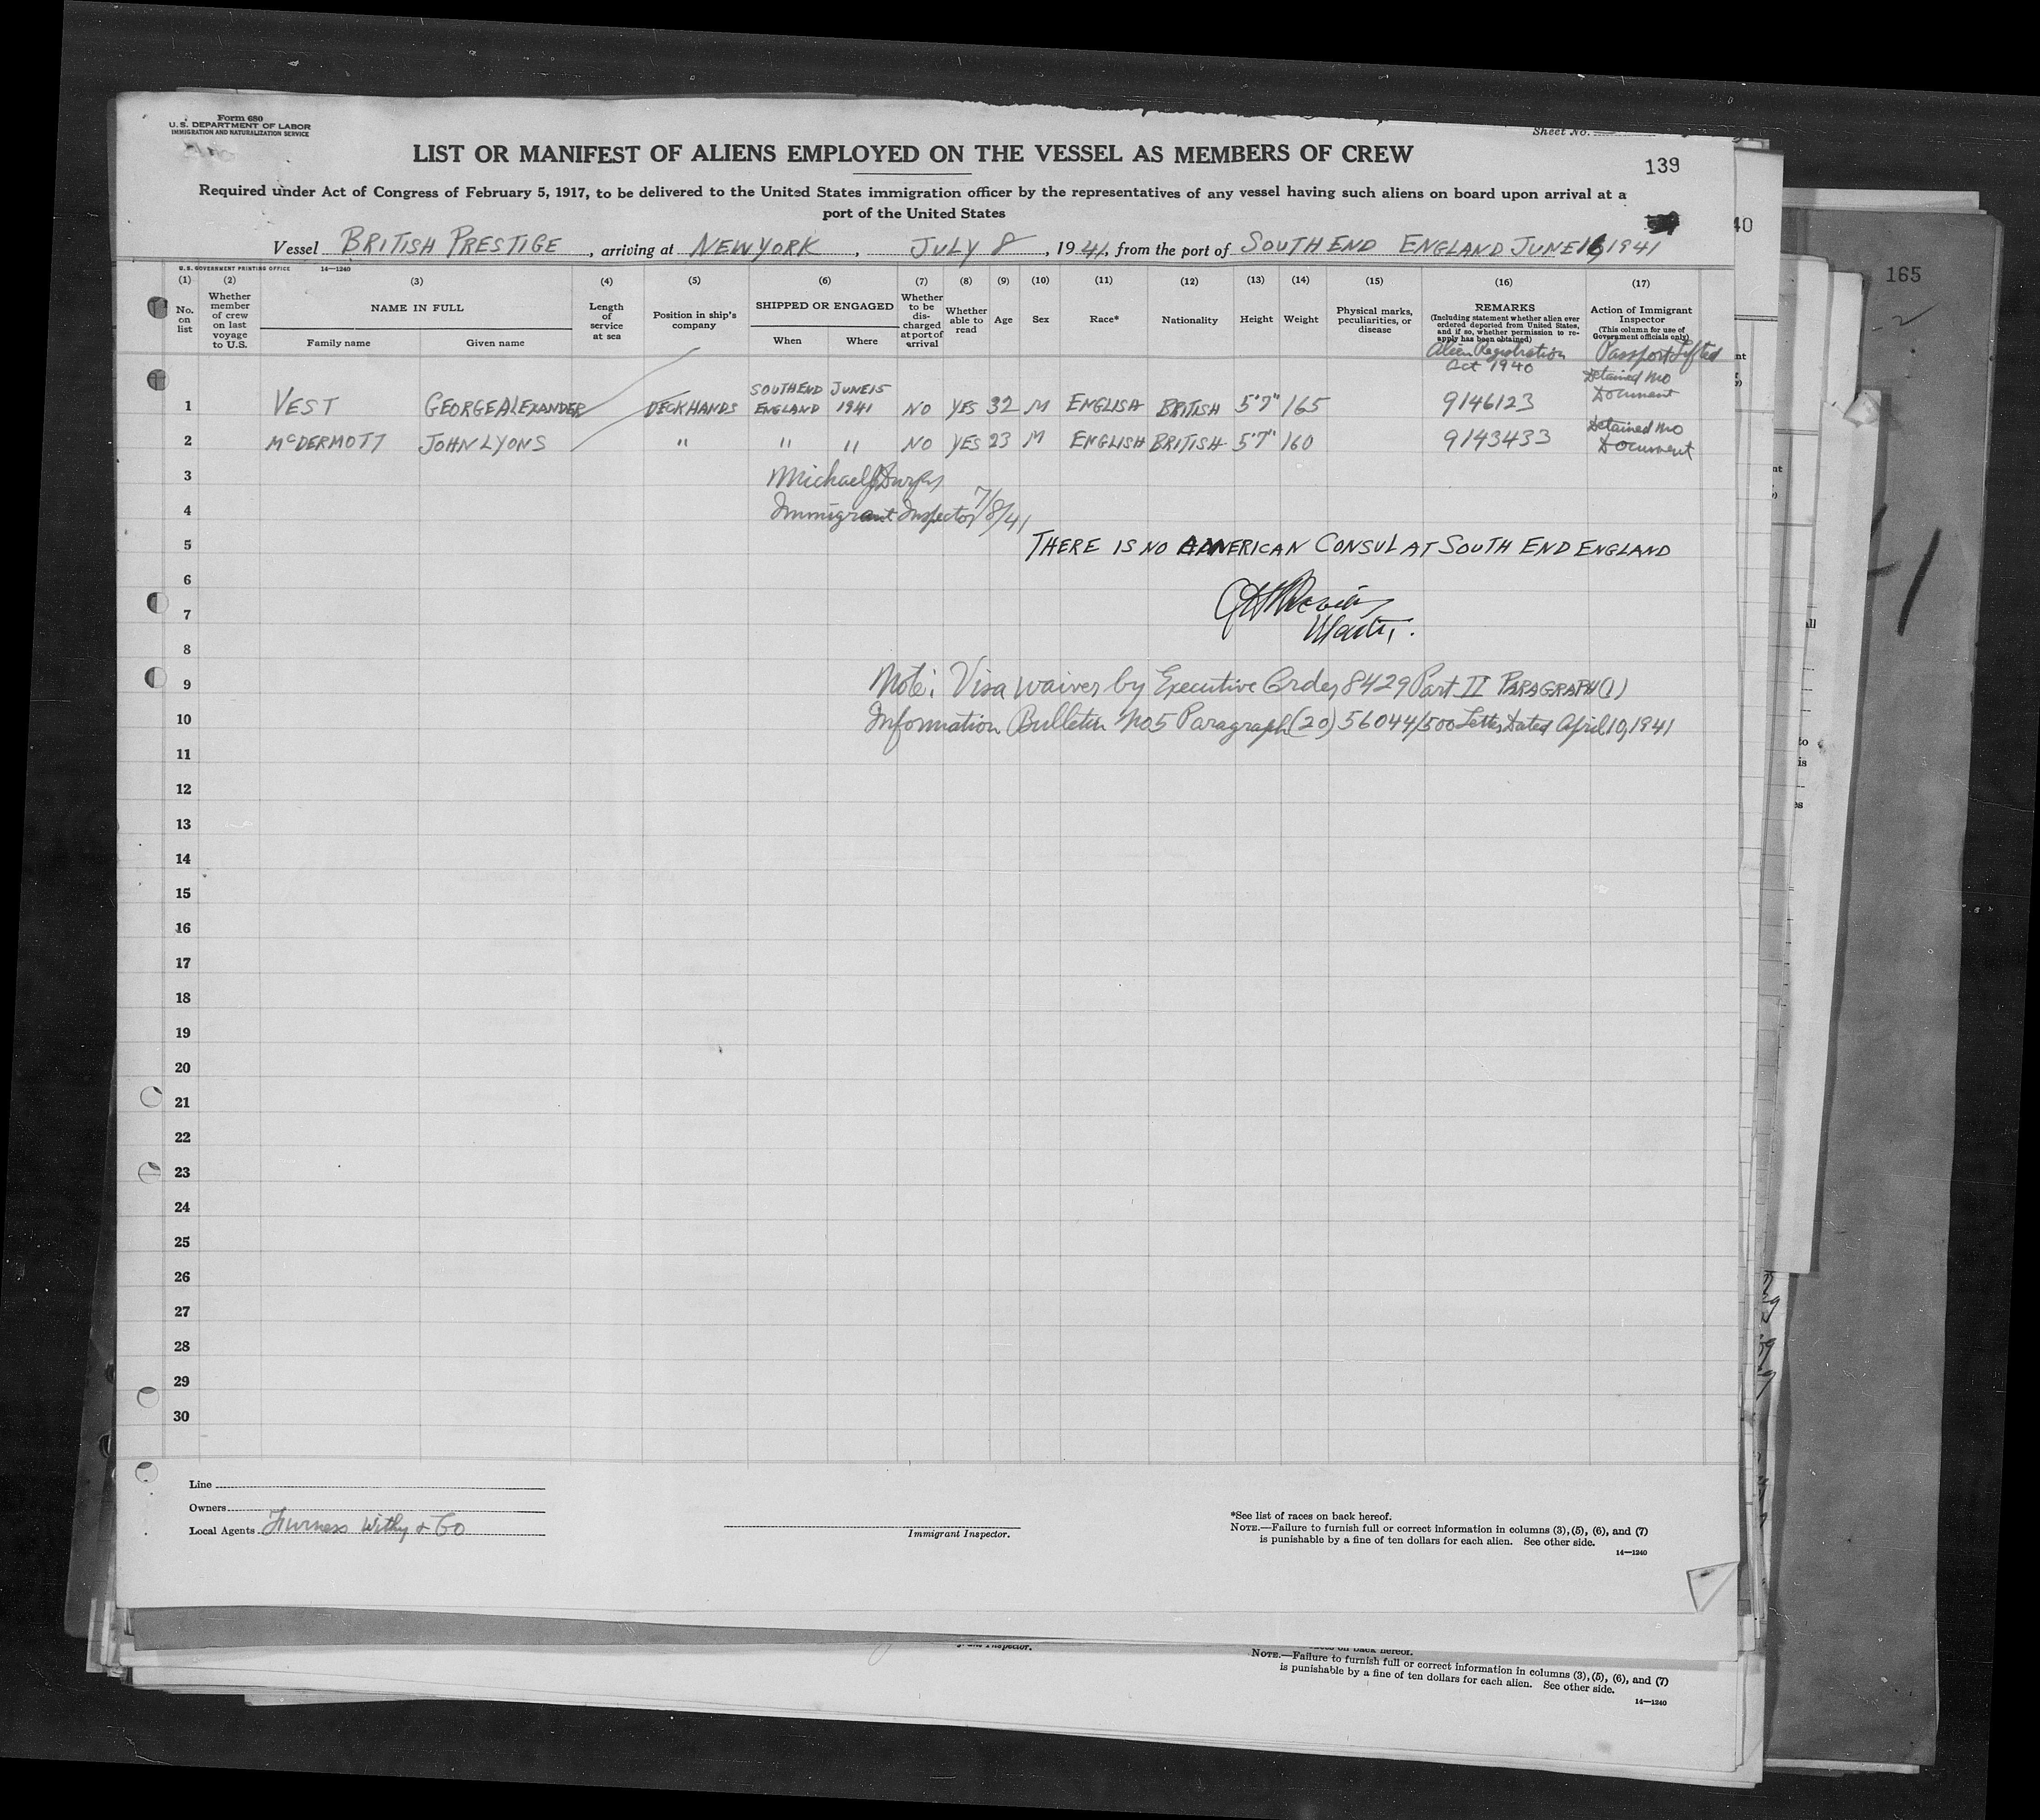 Form 680
U.S. DEPARTMENT OF LABOR
IMMIGRATION AND NATURALIZATION SERVICE
Sheet No.
LIST OR MANIFEST OF ALIENS EMPLOYED ON THE VESSEL AS MEMBERS OF CREW
139
Required under Act of Congress of February 5, 1917, to be delivered to the United States immigration officer by the representatives of any vessel having such aliens on board upon arrival at a
port of the United States
40
Vessel BRITISH PRESTIGE, arriving at NEW YORK, JULY 8, 1941, from the port of SOUTH END ENGLAND JUNE 16, 1941
165
U.S. GOVERNMENT PRINTING OFFICE 14—1240
(1) No. on list
(2) Whether member of crew on last voyage to U.S.
(3) NAME IN FULL Family name Given name
(4) Length of service at sea
(5) Position in ship's company
(6) SHIPPED OR ENGAGED When Where
(7) Whether to be discharged at port of arrival
(8) Whether able to read
(9) Age
(10) Sex
(11) Race*
(12) Nationality
(13) Height
(14) Weight
(15) Physical marks, peculiarities, or disease
(16) REMARKS (Including statement whether alien ever ordered deported from United States, and if so, whether permission to reapply has been obtained)
(17) Action of Immigrant Inspector (This column for use of Government officials only)
Alien Registration Act 1940
Passport Lifted
1 VEST GEORGE ALEXANDER DECKHANDS SOUTH END ENGLAND JUNE 15 1941 NO YES 32 M ENGLISH BRITISH 5'7" 165 9146123 Detained no Document
2 McDERMOTT JOHN LYONS " " " NO YES 23 M ENGLISH BRITISH 5'7" 160 9143433 Detained no Document
3 Michael J
4 Immigrant Inspector 7/8/41
5 THERE IS NO AMERICAN CONSUL AT SOUTH END ENGLAND
6
7
8
9 Note: Visa waiver by Executive Order 8429 Part II PARAGRAPH (1)
10 Information Bulletin No 5 Paragraph (20) 56044/500 Letter Dated April 10, 1941
11
12
13
14
15
16
17
18
19
20
21
22
23
24
25
26
27
28
29
30
Line
Owners
Local Agents Furness Withy & Co
Immigrant Inspector.
*See list of races on back hereof.
NOTE.—Failure to furnish full or correct information in columns (3), (5), (6), and (7)
is punishable by a fine of ten dollars for each alien. See other side.
14—1240
Inspector.
back hereof.
NOTE.—Failure to furnish full or correct information in columns (3), (5), (6), and (7)
is punishable by a fine of ten dollars for each alien. See other side.
14—1240